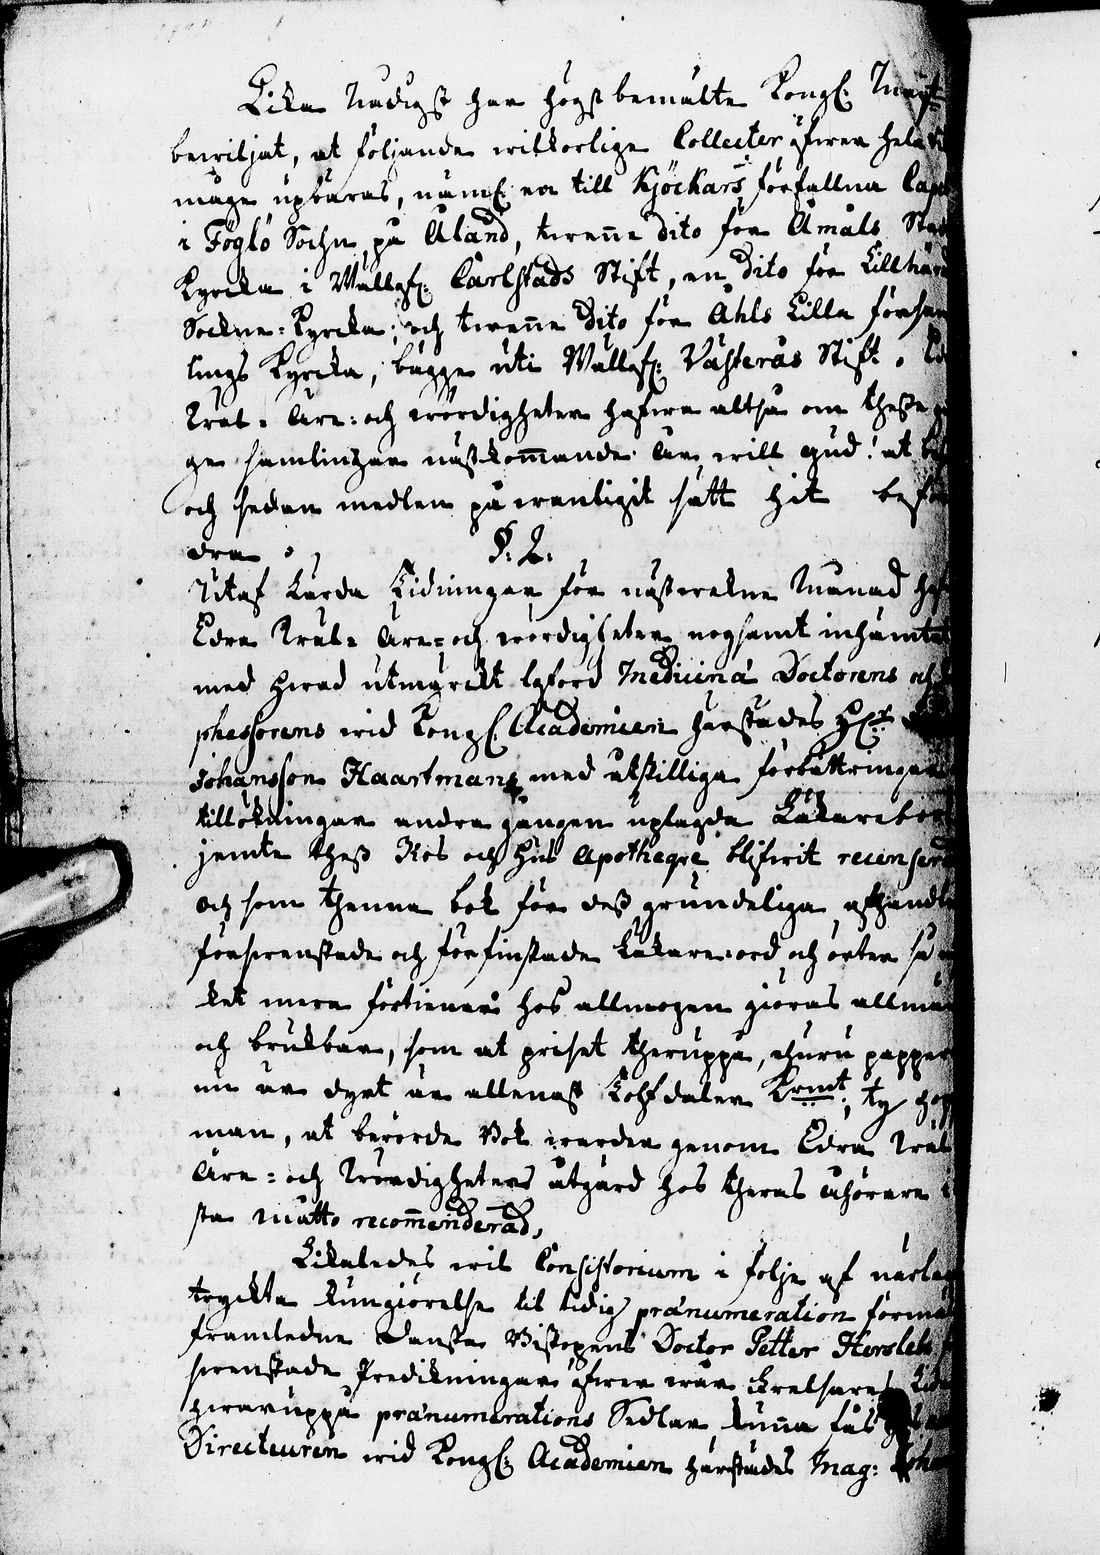 Lika Nådigst har högst bemälte Kongl: Maij:t
bewiljat, at följande wilkorlige Collecter öfwer hela
måge upbäras, näml: en till Kjökars förfallna Capel
i Föglö Sochn på Åland, twenne dito för Åmåls Stads
Kyrcka i Wällofl: Carlstads Stift, en dito för Lillhärdals
Sockne-Kyrcka; och twenne dito för Åhls Lilla försam
lings Kyrcka, bägge uti Wällofl: Västerås Stift.
Wäl- Äre- och wördigheter hafwa altså om thesse
ge samlingar nästkommande år, will Gud! at
och sedan medlen på wanligit sätt hit beför
dra.
§. 2.
Utaf Lärda Tidningar för nästwekne Månad
Edra Wäl- Äre- och wördigheter nogsamt inhämtat
med hwad utmärckt loford Medicinæ Doctorens och
phessorens wid Kongl: Academien härstädes H:r
Johansson Haartmans med åtskilliga förbättringar
tillökningar andra gången uplagda Läkarebok
jemte theß Res och Hus Apotheque blifwit recenserad
och som thenna bok för deß grundeliga afhandling
förswenskade och förfinskade Läkare-ord och örter så
ket mera förtienar hos allmogen giöras allmän
och brukbar, som at priset theruppå, ehuru papper
nu är dyrt är allenast Tolf daler K:rmt; ty
man, at berörde Bok warder genom Edra Wäl
Äre- och Wördigheters åtgärd hos theras åhörare
sta måtto recommenderad.
Likaledes wil Consistorium i följe af närlag
tryckta kungiörelse til tidig prænumeration
framledne Danska Biskopens Doctor Petter Hersleb
swenskade Predikningar öfwer wår Frelsares
hwaruppå prænumerations Sedlar kunna fås
Directeuren wid Kongl: Academien härstädes Mag: